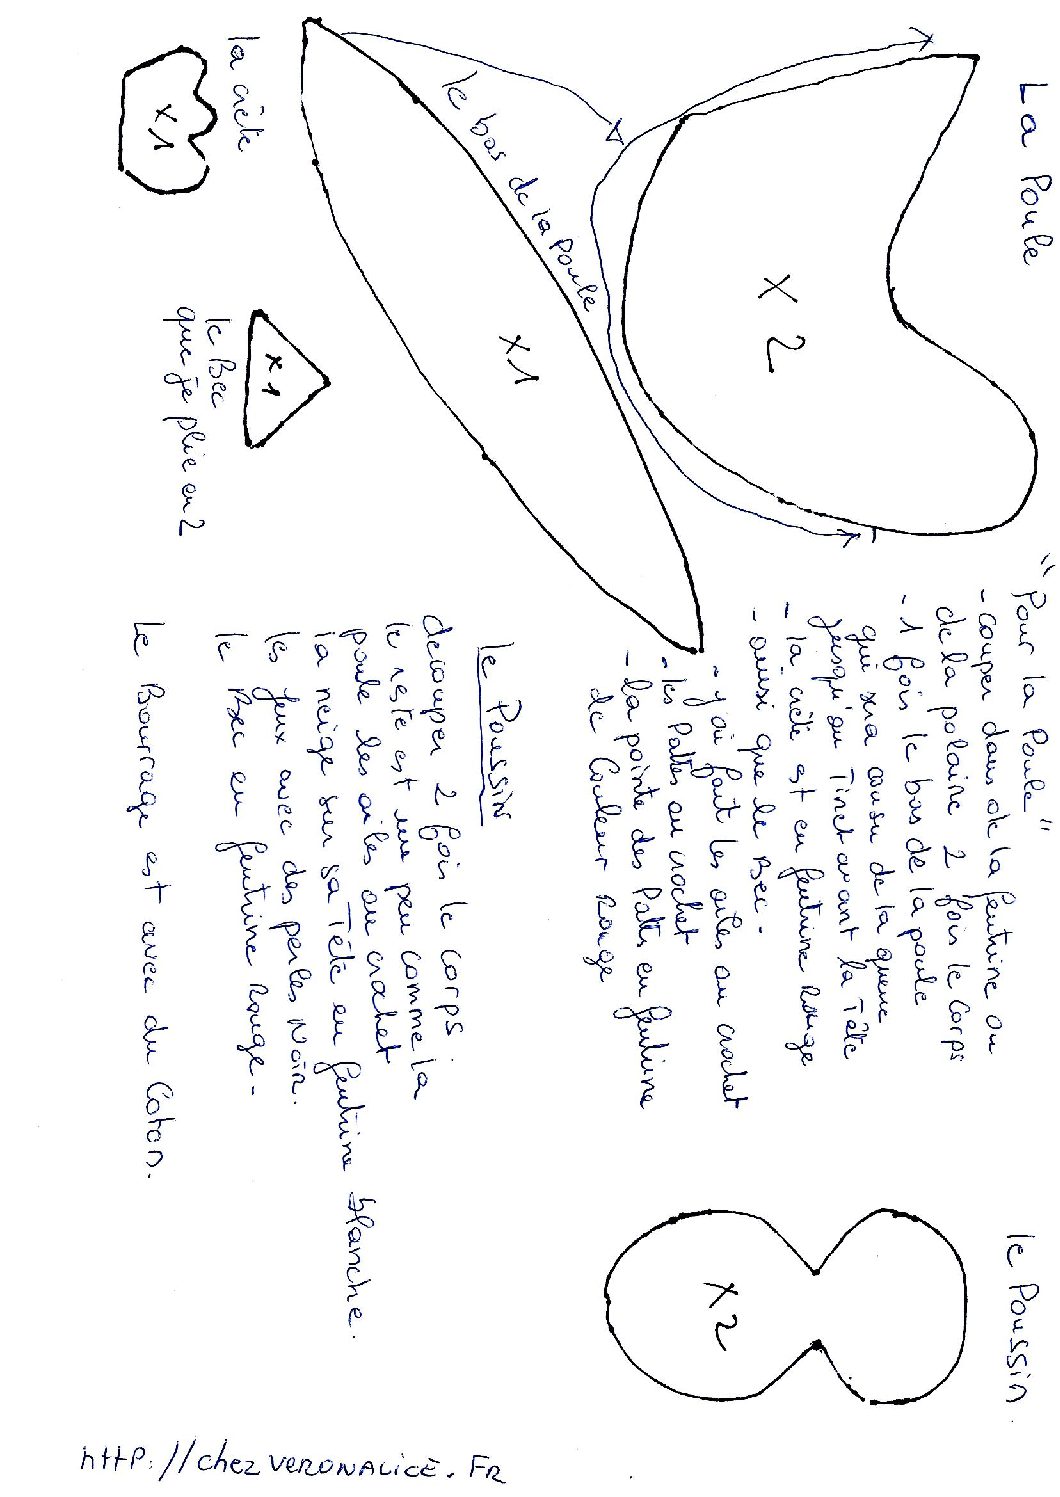 La Poule
x 2
le bas de la Poule
x1
la crête
x1
le Bec
que je plie en 2
x1
"Pour la Poule"
- couper dans de la feutrine ou
de la polaire 2 fois le Corps
- 1 fois le bas de la poule
qui sera cousu de la queue
jusqu'au Tinet avant la Tête
- la crête est en feutrine Rouge
- ainsi que le Bec.
- j'ai fait les ailes au crochet
- les Pattes au crochet
- la pointe des Pattes en feutrine
de Couleur Rouge
le Poussin
decouper 2 fois le corps
le reste est un peu comme la
poule les ailes au crochet
la neige sur sa Tête en feutrine blanche.
les yeux avec des perles Noir.
le Bec en feutrine Rouge -
Le Bourrage est avec du Coton.
le Poussin.
x 2
http://chezVERONALICE.FR